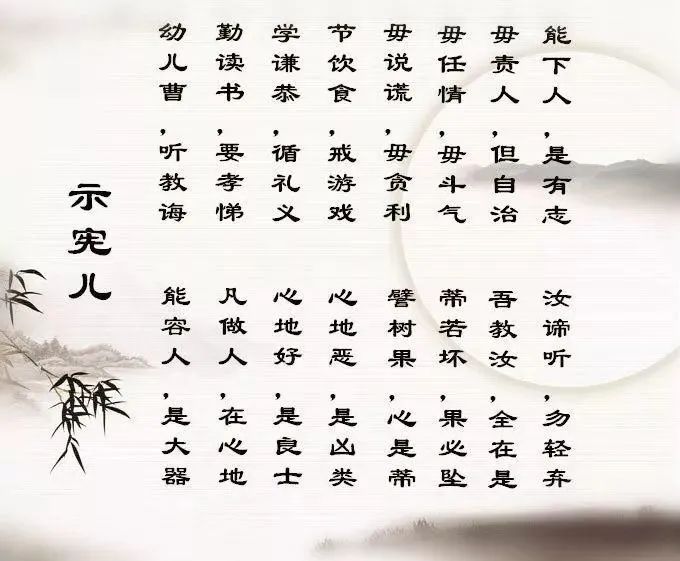 示宪儿
幼儿曹,听教诲
勤读书,要孝悌
学谦恭,循礼义
节饮食,戒游戏
毋说谎,毋贪利
毋任情,毋斗气
毋责人,但自治
能下人,是有志
能容人,是大器
凡做人,在心地
心地好,是良士
心地恶,是凶类
譬树果,心是蒂
蒂若坏,果必坠
吾教汝,全在是
汝谛听,勿轻弃